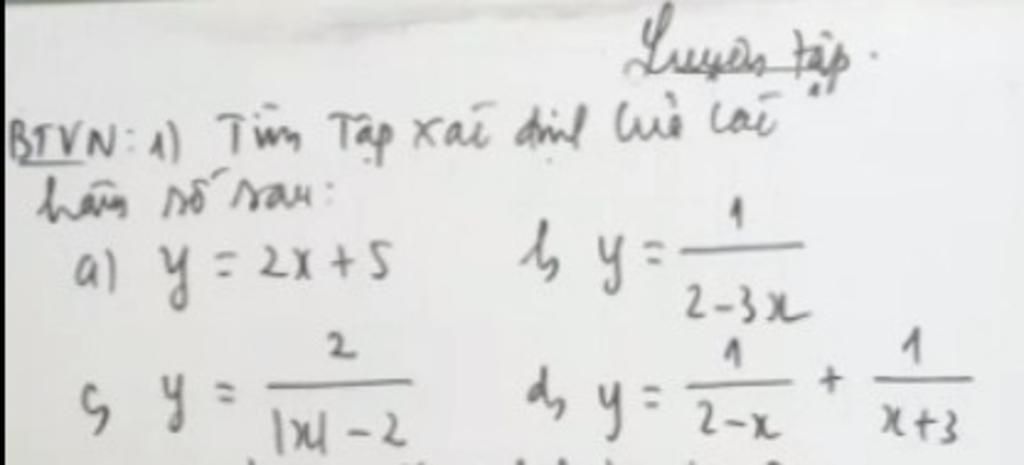 Luyện tập.
BTVN: 1) Tìm Tập xác định của các
hàm số sau:
a) y = 2x + 5 b) y = 1/(2-3x)
c) y = 2/(|x| - 2) d) y = 1/(2-x) + 1/(x+3)